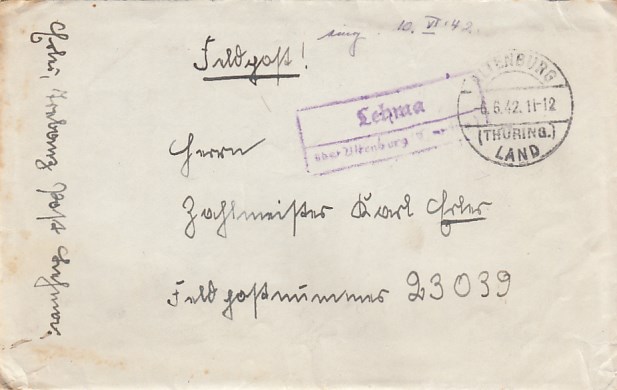 eing. 10. VI. 42.
Feldpost!
Lehma
über Altenburg (Thür.)
ALTENBURG
6.6.42. 11-12
(THÜRING.)
LAND
Herrn
Zahlmeister Karl Erler
Feldpostnummer 23039
Erler, Post